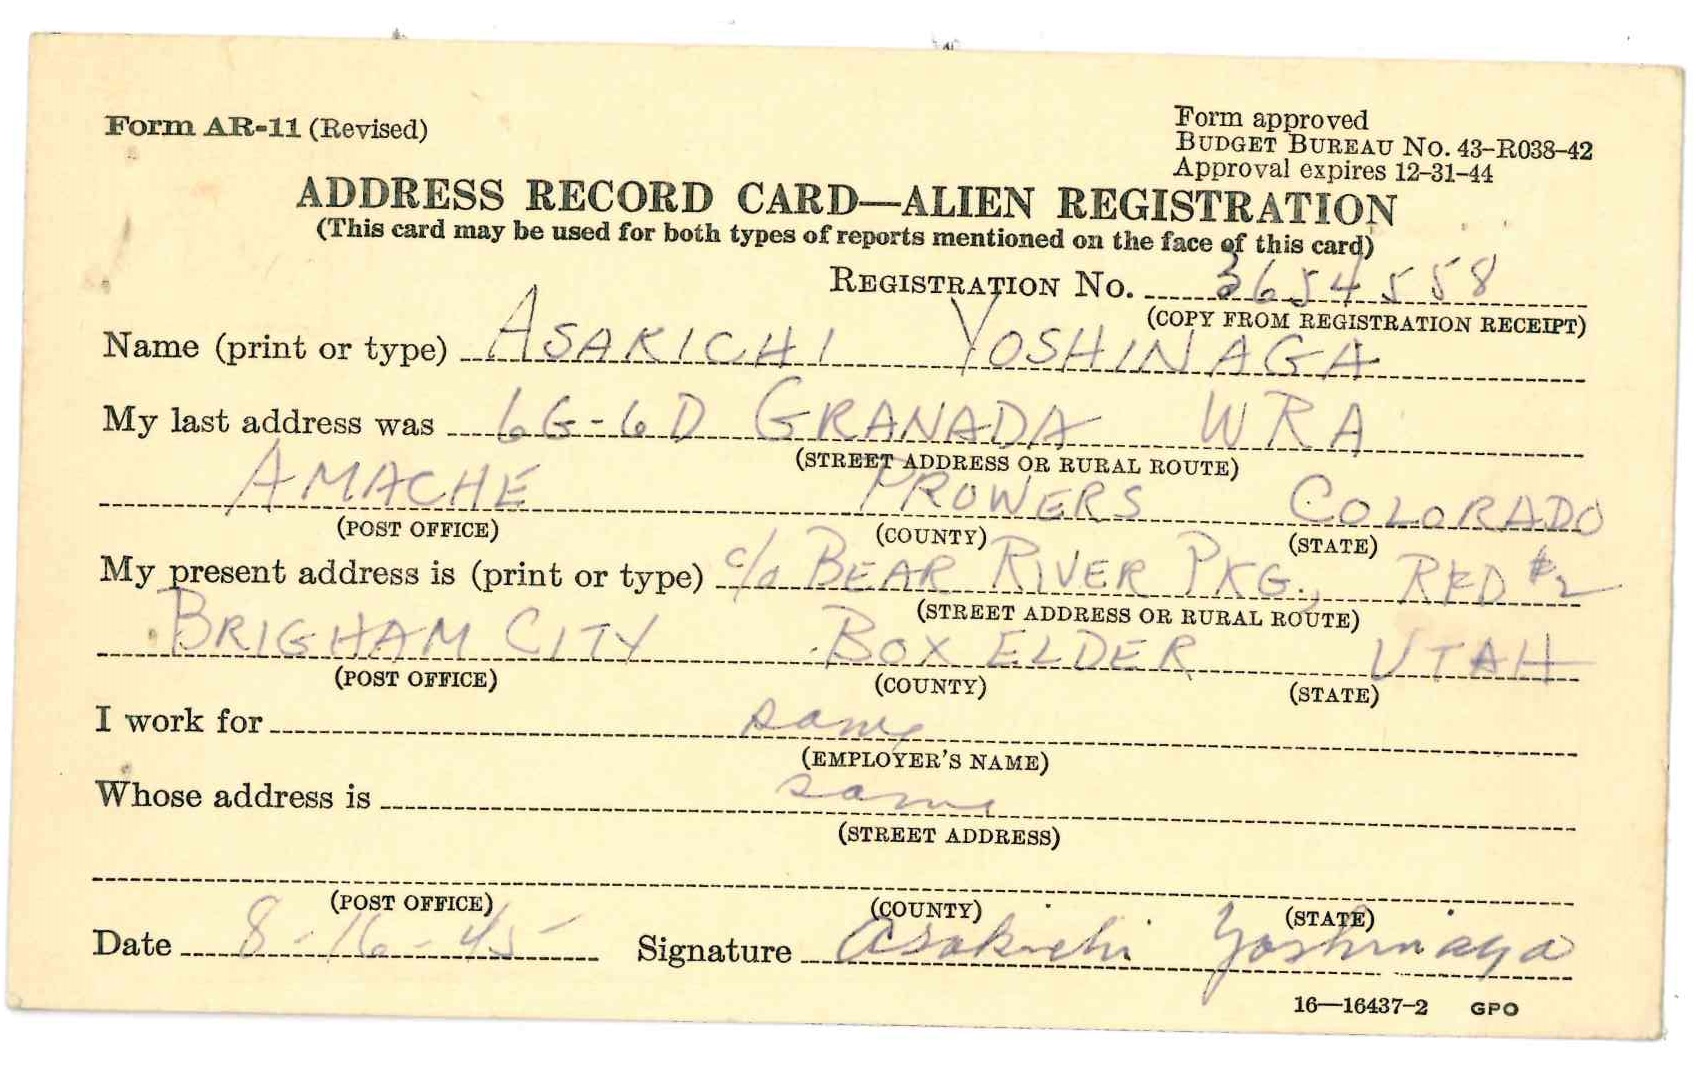 Form AR-11 (Revised)
Form approved
BUDGET BUREAU NO. 43-R038-42
Approval expires 12-31-44
ADDRESS RECORD CARD—ALIEN REGISTRATION
(This card may be used for both types of reports mentioned on the face of this card)
REGISTRATION NO. 3654558
(COPY FROM REGISTRATION RECEIPT)
Name (print or type) ASAKICHI YOSHINAGA
My last address was 6G-6D GRANADA WRA
(STREET ADDRESS OR RURAL ROUTE)
AMACHE PROWERS COLORADO
(POST OFFICE) (COUNTY) (STATE)
My present address is (print or type) c/o BEAR RIVER PKG., RFD #2
(STREET ADDRESS OR RURAL ROUTE)
BRIGHAM CITY BOX ELDER UTAH
(POST OFFICE) (COUNTY) (STATE)
I work for same
(EMPLOYER'S NAME)
Whose address is same
(STREET ADDRESS)
(POST OFFICE) (COUNTY) (STATE)
Date 8-16-45 Signature Asakichi Yoshinaga
16—16437-2 GPO